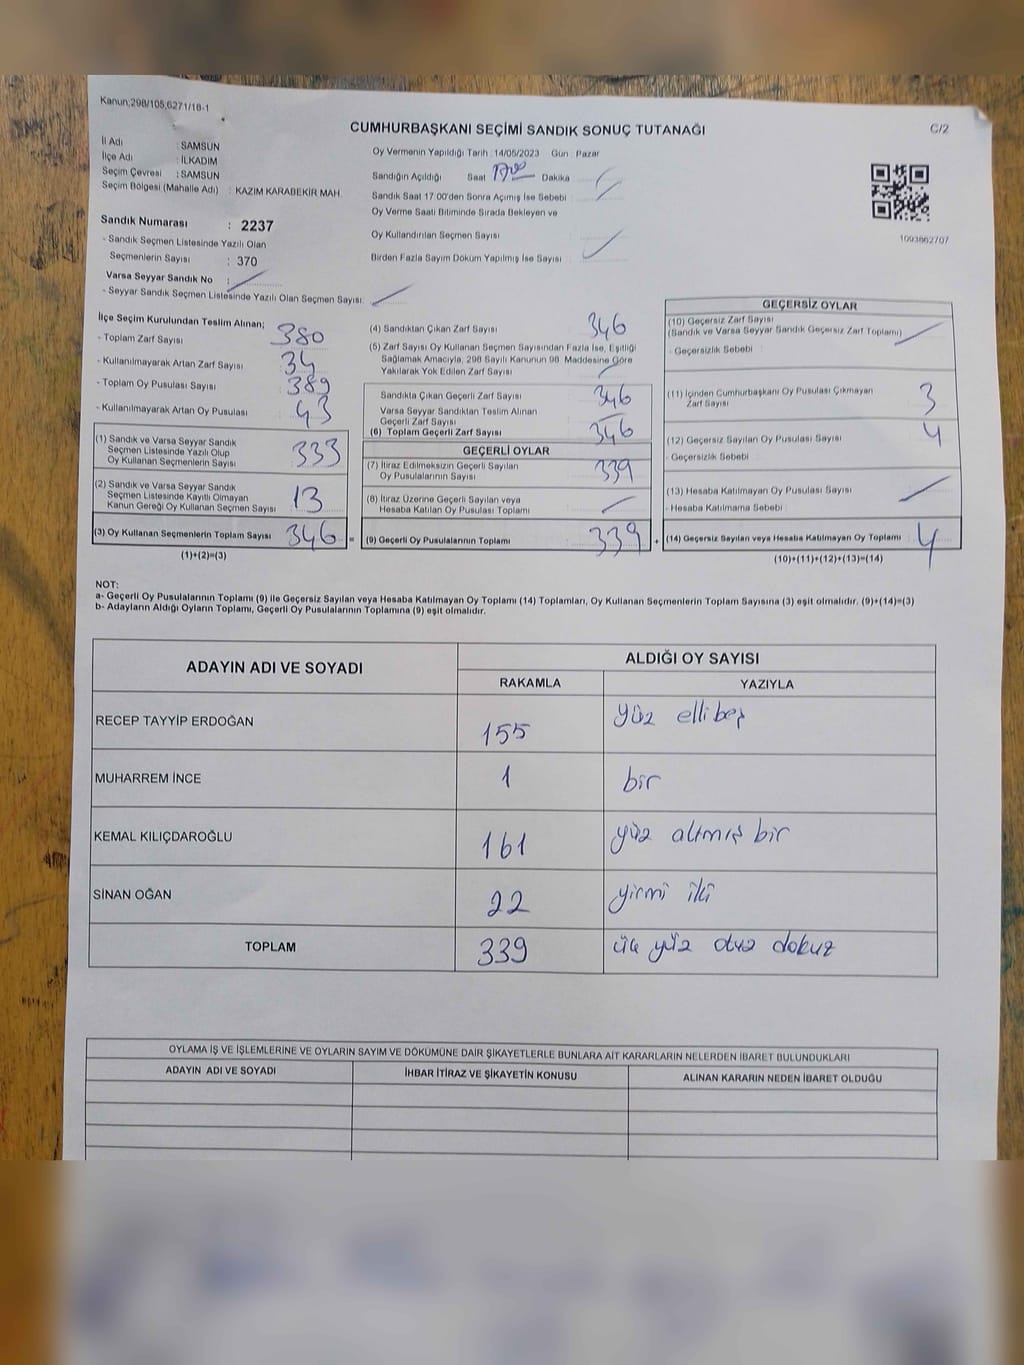 Kanun;298/105,6271/16-1
CUMHURBAŞKANI SEÇİMİ SANDIK SONUÇ TUTANAĞI
C/2
İl Adı : SAMSUN
İlçe Adı : İLKADIM
Seçim Çevresi : SAMSUN
Seçim Bölgesi (Mahalle Adı) : KAZIM KARABEKİR MAH.
Oy Vermenin Yapıldığı Tarih : 14/05/2023 Gün : Pazar
Sandığın Açıldığı Saat 17:00 Dakika
Sandık Saat 17:00'den Sonra Açımış İse Sebebi
Oy Verme Saati Bitiminde Sırada Bekleyen ve
Oy Kullandırılan Seçmen Sayısı
Birden Fazla Sayım Döküm Yapılmış İse Sayısı :
1093662707
Sandık Numarası : 2237
- Sandık Seçmen Listesinde Yazılı Olan
Seçmenlerin Sayısı : 370
Varsa Seyyar Sandık No :
- Seyyar Sandık Seçmen Listesinde Yazılı Olan Seçmen Sayısı:
İlçe Seçim Kurulundan Teslim Alınan;
- Toplam Zarf Sayısı 380
- Kullanılmayarak Artan Zarf Sayısı 34
- Toplam Oy Pusulası Sayısı 389
- Kullanılmayarak Artan Oy Pusulası 43
(1) Sandık ve Varsa Seyyar Sandık
Seçmen Listesinde Yazılı Olup
Oy Kullanan Seçmenlerin Sayısı 333
(2) Sandık ve Varsa Seyyar Sandık
Seçmen Listesinde Kayıtlı Olmayan
Kanun Gereği Oy Kullanan Seçmen Sayısı 13
(3) Oy Kullanan Seçmenlerin Toplam Sayısı 346 =
(1)+(2)=(3)
(4) Sandıktan Çıkan Zarf Sayısı 346
(5) Zarf Sayısı Oy Kullanan Seçmen Sayısından Fazla İse, Eşitliği
Sağlamak Amacıyla, 298 Sayılı Kanunun 98. Maddesine Göre
Yakılarak Yok Edilen Zarf Sayısı
Sandıkta Çıkan Geçerli Zarf Sayısı 346
Varsa Seyyar Sandıktan Teslim Alınan
Geçerli Zarf Sayısı
(6) Toplam Geçerli Zarf Sayısı 346
GEÇERLİ OYLAR
(7) İtiraz Edilmeksizin Geçerli Sayılan
Oy Pusulalarının Sayısı 339
(8) İtiraz Üzerine Geçerli Sayılan veya
Hesaba Katılan Oy Pusulası Toplamı
(9) Geçerli Oy Pusulalarının Toplamı 339 +
GEÇERSİZ OYLAR
(10) Geçersiz Zarf Sayısı
(Sandık ve Varsa Seyyar Sandık Geçersiz Zarf Toplamı)
- Geçersizlik Sebebi :
(11) İçinden Cumhurbaşkanı Oy Pusulası Çıkmayan
Zarf Sayısı 3
(12) Geçersiz Sayılan Oy Pusulası Sayısı 4
- Geçersizlik Sebebi :
(13) Hesaba Katılmayan Oy Pusulası Sayısı
- Hesaba Katılmama Sebebi :
(14) Geçersiz Sayılan veya Hesaba Katılmayan Oy Toplamı : 4
(10)+(11)+(12)+(13)=(14)
NOT:
a- Geçerli Oy Pusulalarının Toplamı (9) ile Geçersiz Sayılan veya Hesaba Katılmayan Oy Toplamı (14) Toplamları, Oy Kullanan Seçmenlerin Toplam Sayısına (3) eşit olmalıdır. (9)+(14)=(3)
b- Adayların Aldığı Oyların Toplamı, Geçerli Oy Pusulalarının Toplamına (9) eşit olmalıdır.
ADAYIN ADI VE SOYADI
ALDIĞI OY SAYISI
RAKAMLA YAZIYLA
RECEP TAYYİP ERDOĞAN 155 yüz elli beş
MUHARREM İNCE 1 bir
KEMAL KILIÇDAROĞLU 161 yüz altmış bir
SİNAN OĞAN 22 yirmi iki
TOPLAM 339 üç yüz otuz dokuz
OYLAMA İŞ VE İŞLEMLERİNE VE OYLARIN SAYIM VE DÖKÜMÜNE DAİR ŞİKAYETLERLE BUNLARA AİT KARARLARIN NELERDEN İBARET BULUNDUKLARI
ADAYIN ADI VE SOYADI İHBAR İTİRAZ VE ŞİKAYETİN KONUSU ALINAN KARARIN NEDEN İBARET OLDUĞU